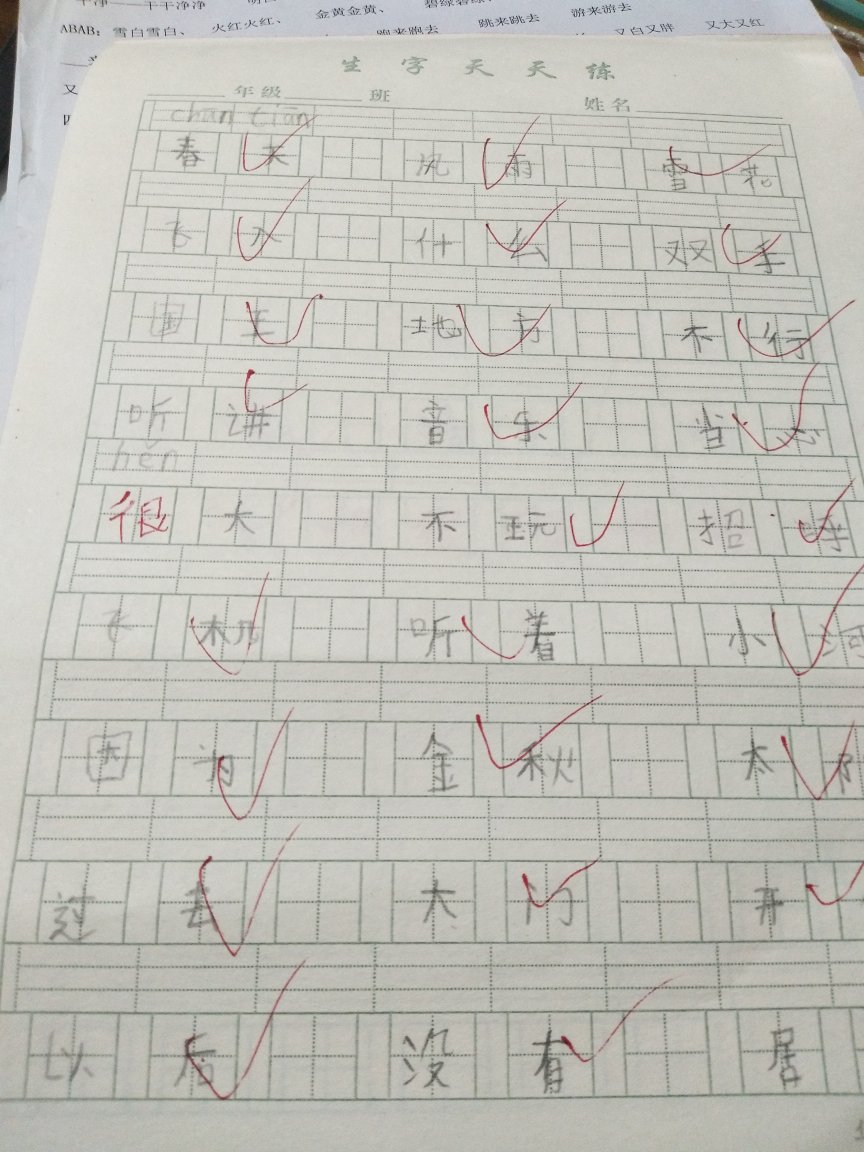 干净——干干净净
ABAB：雪白雪白、 火红火红、 金黄金黄、 碧绿碧绿、
跑来跑去 跳来跳去 游来游去
又 又白又胖 又大又红
生字天天练
年级 班 姓名
chūn tiān
春天 风雨 雪花
飞水 什么 双手
国王 地方 不行
听讲 音乐 当心
hěn
很大 不玩 招呼
飞机 听着 小河
因为 金秋 太阳
过去 大门 开
以后 没有 居